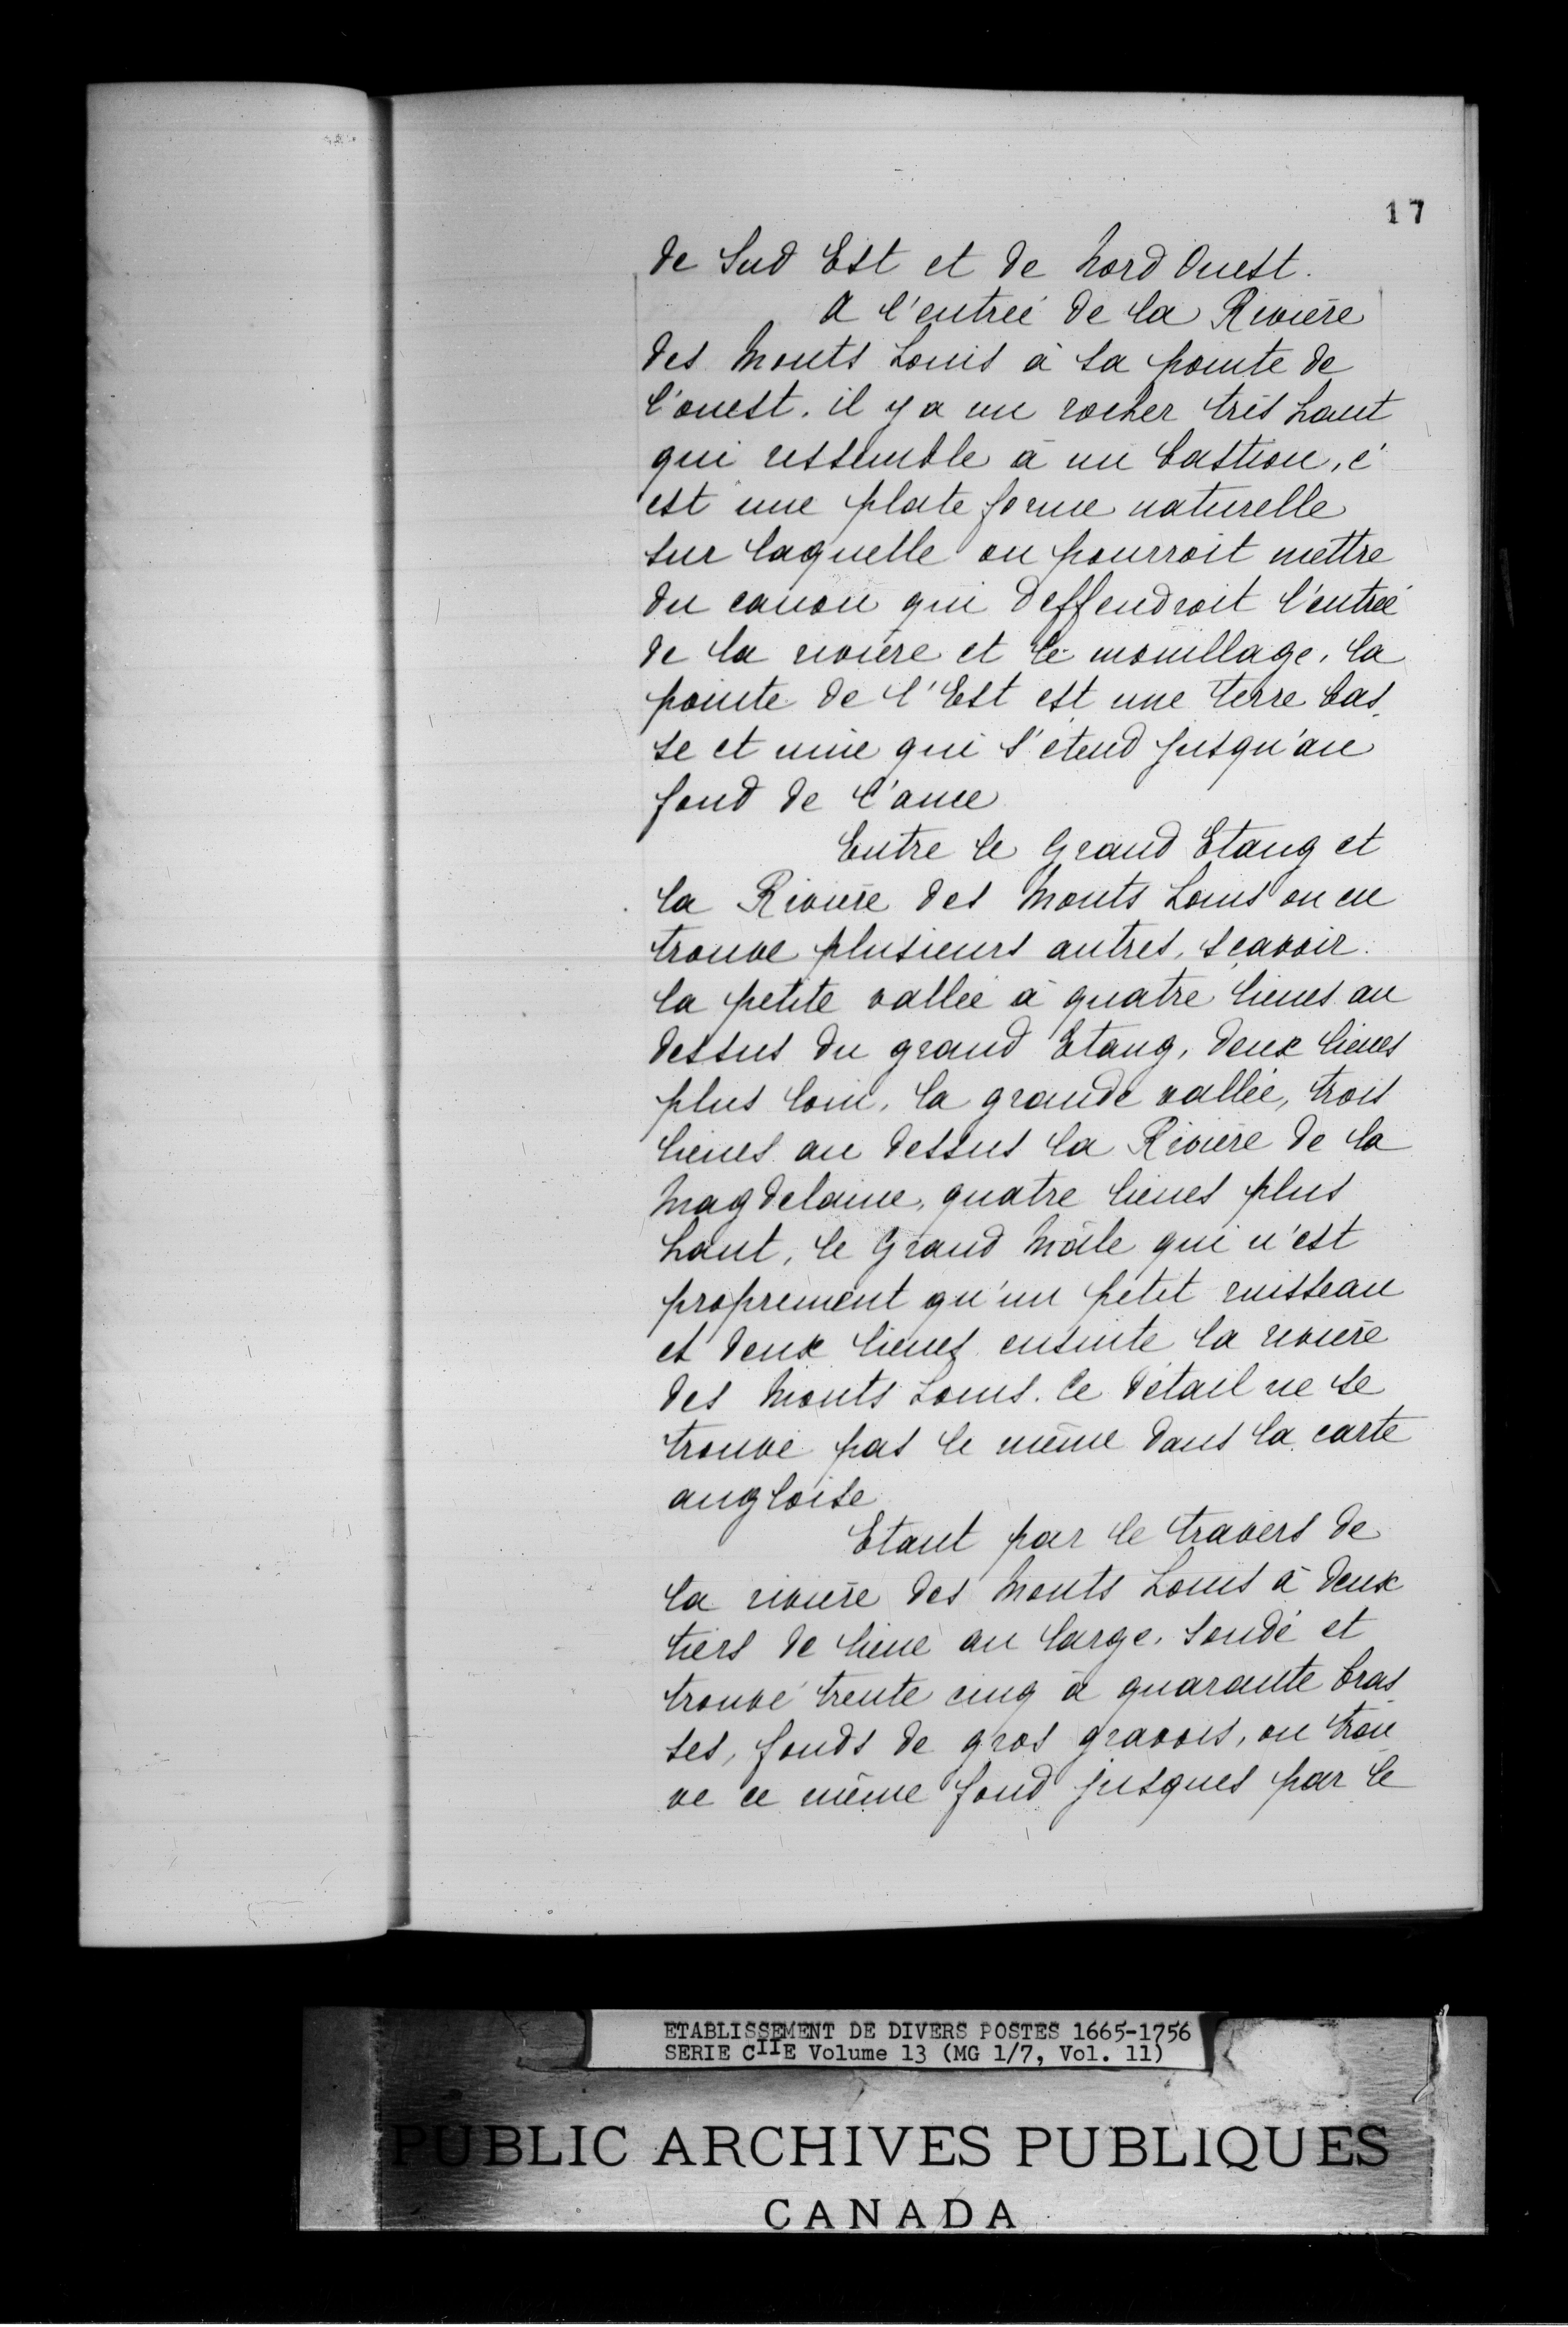 17
de Sud Est et de Nord Ouest.
A l'entrée de la Rivière
des Monts Louis à sa pointe de
l'ouest. il y a un rocher très haut
qui ressemble à un bastion, c'
est une plate forme naturelle
sur laquelle on pourroit mettre
du canon qui deffendroit l'entrée
de la rivière et le mouillage, la
pointe de l'Est est une terre bas-
se et unie qui s'étend jusqu'au
fond de l'anse
Entre le Grand Etang et
la Rivière des Monts Louis on en
trouve plusieurs autres, sçavoir.
la petite vallée à quatre lieues au
dessus du grand Etang, deux lieues
plus loin, la grande vallée, trois
lieues au dessus la Rivière de la
Magdelaine, quatre lieues plus
haut, le Grand Mâle qui n'est
proprement qu'un petit ruisseau
et deux lieues ensuite la rivière
des Monts Louis. Ce détail ne se
trouve pas le même dans la carte
angloise
Etant par le travers de
la rivière des Monts Louis à deux
tiers de lieue au large, sondé et
trouvé trente cinq à quarante bras
ses, fonds de gros gravois, on trou
ve ce même fond jusques par le
ETABLISSEMENT DE DIVERS POSTES 1665-1756
SERIE CIIE Volume 13 (MG 1/7, Vol. 11)
PUBLIC ARCHIVES PUBLIQUES
CANADA